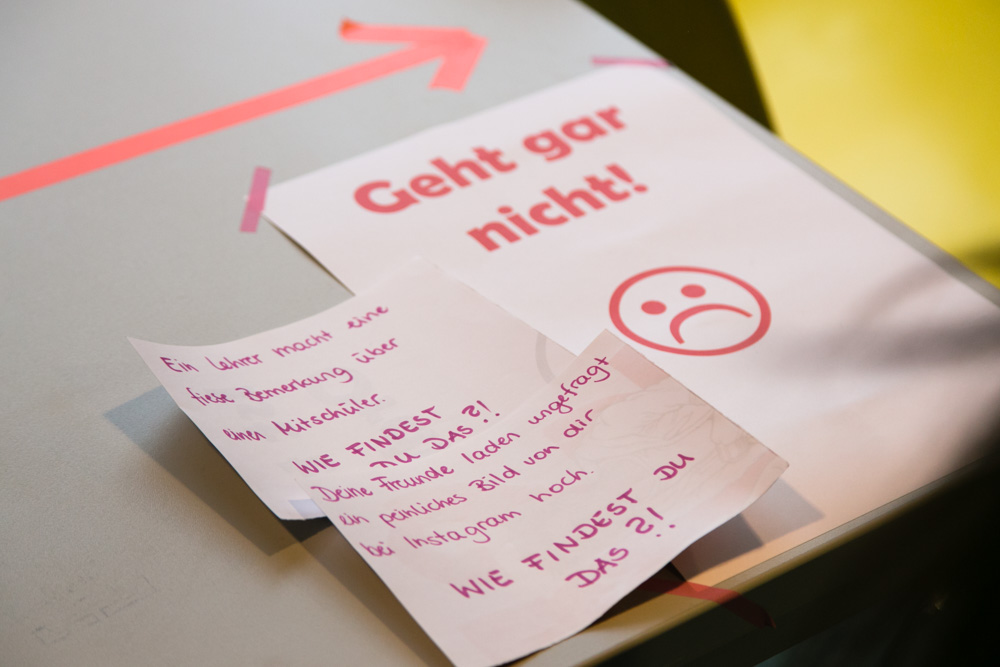 Geht gar
nicht!
Ein Lehrer macht eine
fiese Bemerkung über
einen Mitschüler.
WIE FINDEST
DU DAS?!
Deine Freunde laden ungefragt
ein peinliches Bild von dir
bei Instagram hoch.
WIE FINDEST DU
DAS?!